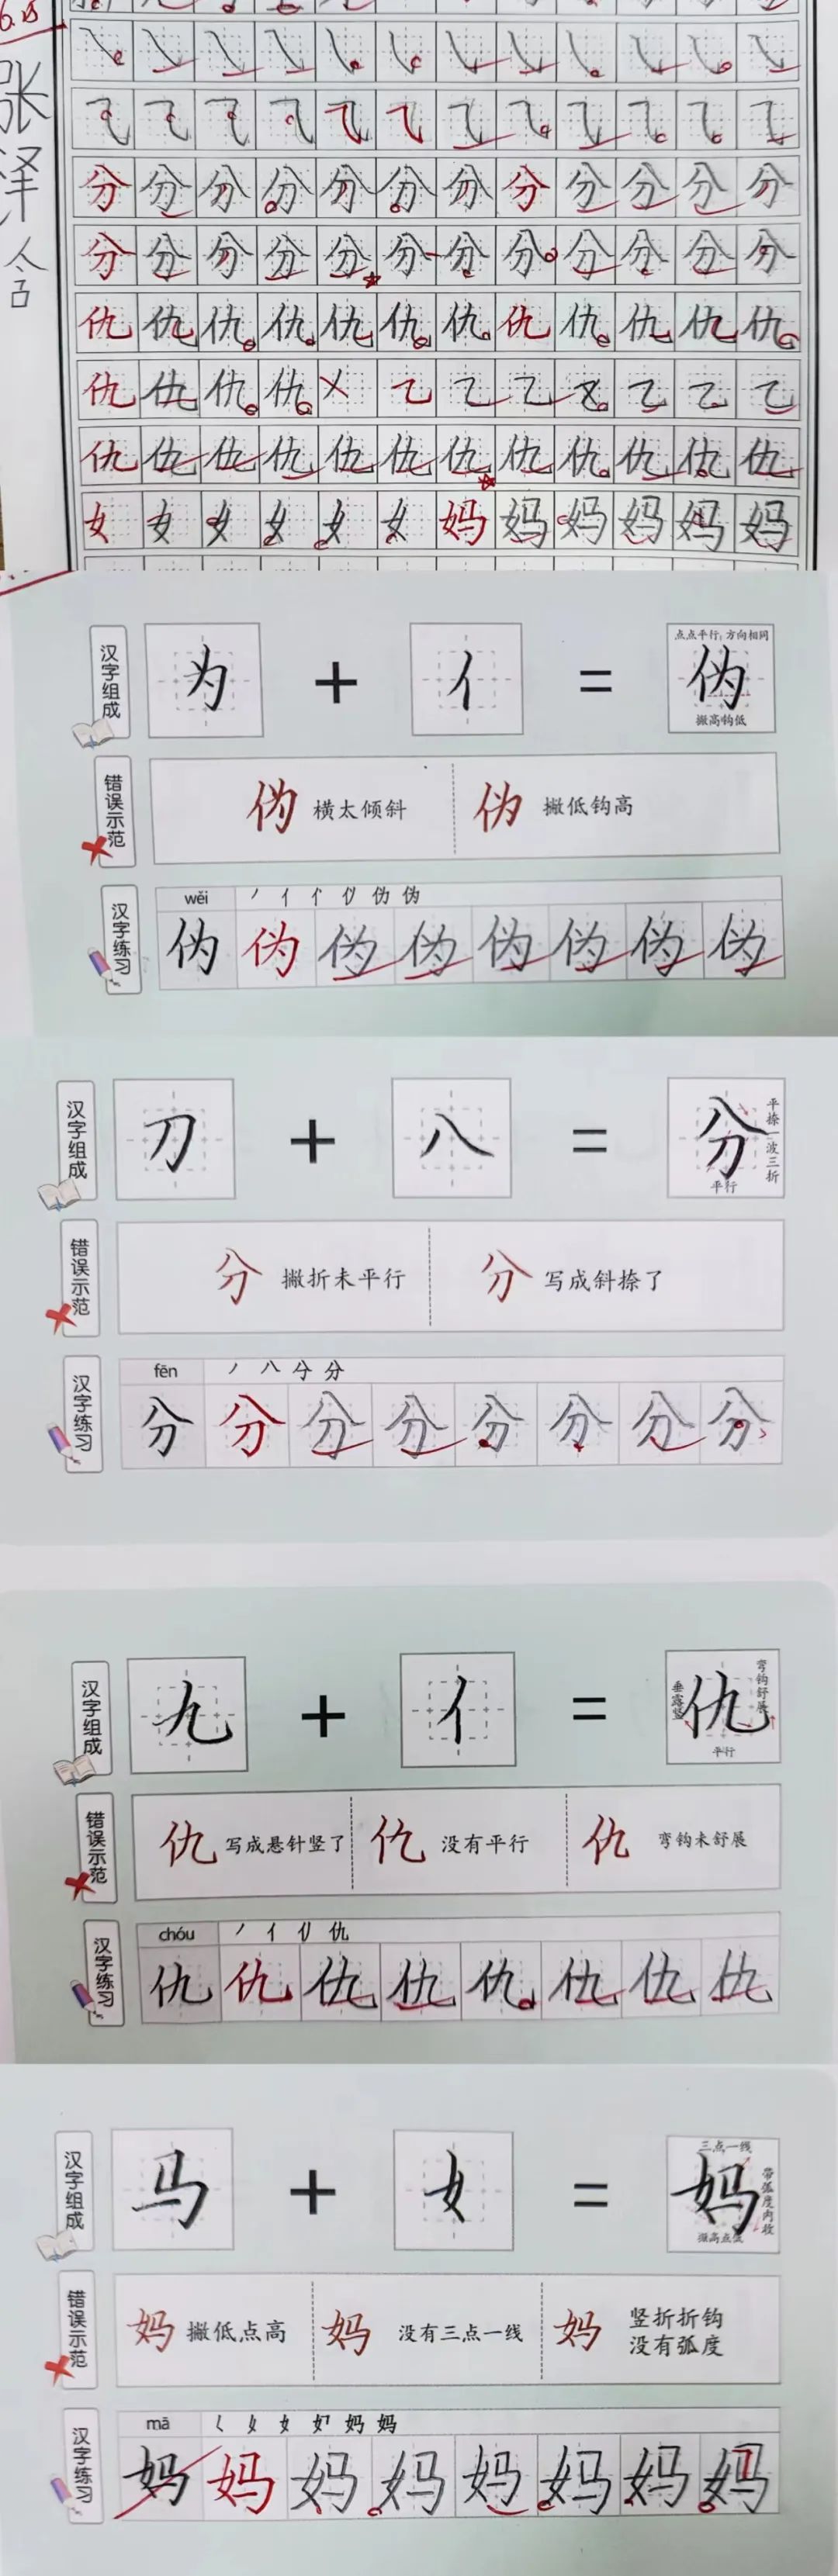 6.15
张
泽
分 分 分 分 分 分 分 分 分 分 分 分
分 分 分 分 分 分 分 分 分 分 分 分
仇 仇 仇 仇 仇 仇 仇 仇 仇 仇 仇 仇
仇 仇 仇 仇
仇 仇 仇 仇 仇 仇 仇 仇 仇 仇 仇 仇
女 女 女 女 女 女 妈 妈 妈 妈 妈 妈
汉字组成
为 + 亻 = 伪
点点平行,方向相同
撇高钩低
错误示范
伪 横太倾斜
伪 撇低钩高
汉字练习
wěi
伪 伪 伪 伪 伪 伪 伪 伪
汉字组成
刀 + 八 = 分
平捺一波三折
平行
错误示范
分 撇折未平行
分 写成斜捺了
汉字练习
fēn
分 分 分 分 分 分 分 分
汉字组成
九 + 亻 = 仇
垂露竖
弯钩舒展
平行
错误示范
仇 写成悬针竖了
仇 没有平行
仇 弯钩未舒展
汉字练习
chóu
仇 仇 仇 仇 仇 仇 仇 仇
汉字组成
马 + 女 = 妈
三点一线
带弧度内收
撇高点低
错误示范
妈 撇低点高
妈 没有三点一线
妈 竖折折钩
没有弧度
汉字练习
mā
妈 妈 妈 妈 妈 妈 妈 妈